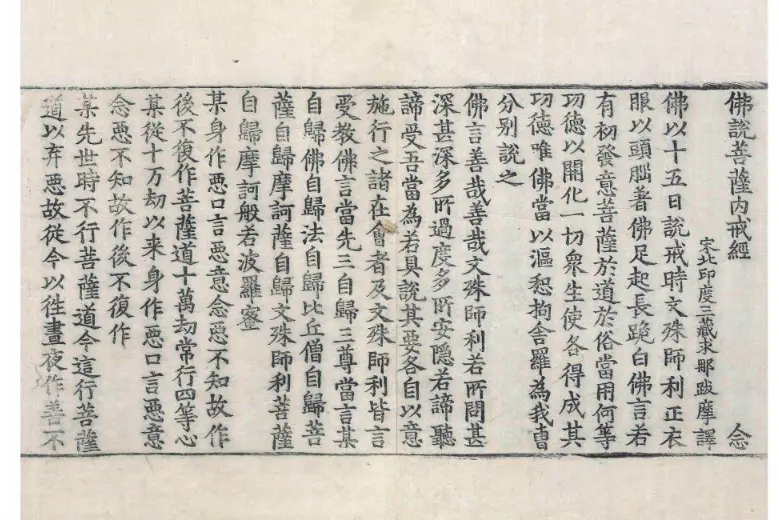 佛說菩薩內戒經 念
宋北印度三藏求那跋摩譯
佛以十五日說戒時文殊師利正衣
眼以頭腦著佛足起長跪白佛言若
有初發意菩薩於道於俗當用何等
功德以開化一切衆生使各得成其
功德唯佛當以漚恕拘舍羅為我曺
分别說之
佛言善哉善哉文殊師利若所問甚
深甚深多所過度多所安隐若諦聽
諦受吾當為若具說其要各自以意
施行之諸在會者及文殊師利皆言
受教佛言當先三自歸三尊當言某
自歸佛自歸法自歸比丘僧自歸菩
薩自歸摩訶薩自歸文殊師利菩薩
自歸摩訶般若波羅蜜
某身作惡口言惡意念惡不知故作
後不復作菩薩道十萬劫常行四等心
某從十万劫以来身作惡口言惡意
念惡不知故作後不復作
某先世時不行菩薩道今這行菩薩
道以弃惡故從今以徃晝夜作善不